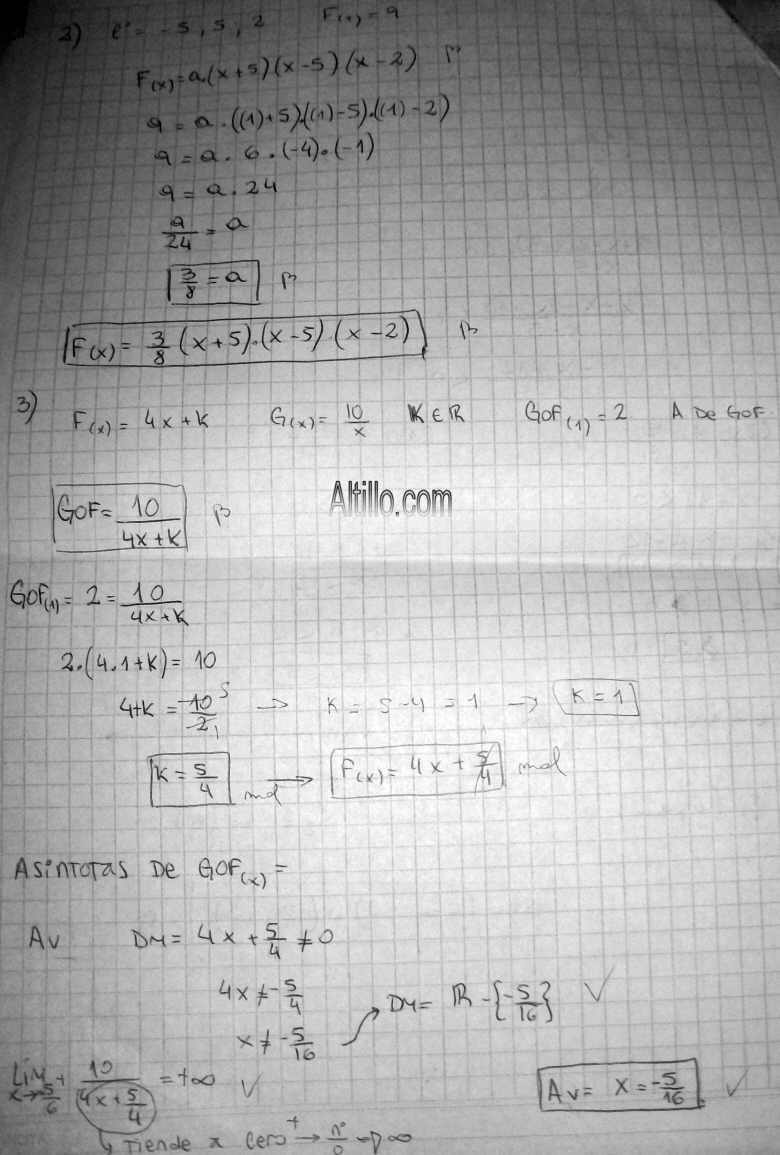 2) C° = -5, 5, 2 F(1) = 9
F(x) = a.(x+5)(x-5)(x-2) B
9 = a.((1)+5).((1)-5).((1)-2)
9 = a. 6. (-4).(-1)
9 = a. 24
9/24 = a
3/8 = a B
F(x) = 3/8 (x+5).(x-5).(x-2) B
3) F(x) = 4x+K G(x) = 10/x K ∈ R GOF(1) = 2 A De GOF
GOF = 10/4x+K B
Altillo.com
GOF(1) = 2 = 10/4x+K
2.(4.1+K) = 10
4+K = 10/2 5 1 → K = 5-4 = 1 → K = 1
K = 5/4 mal → F(x) = 4x + 5/4 mal
Asintotas De GOF(x) =
Av DM = 4x + 5/4 ≠ 0
4x ≠ -5/4
x ≠ -5/16 → DM = R - {-5/16} ✓
Lim x→5/6 + 10/4x+5/4 = +∞ ✓ Av = x = -5/16 ✓
↳ Tiende a cero + → n°/0 → ∞